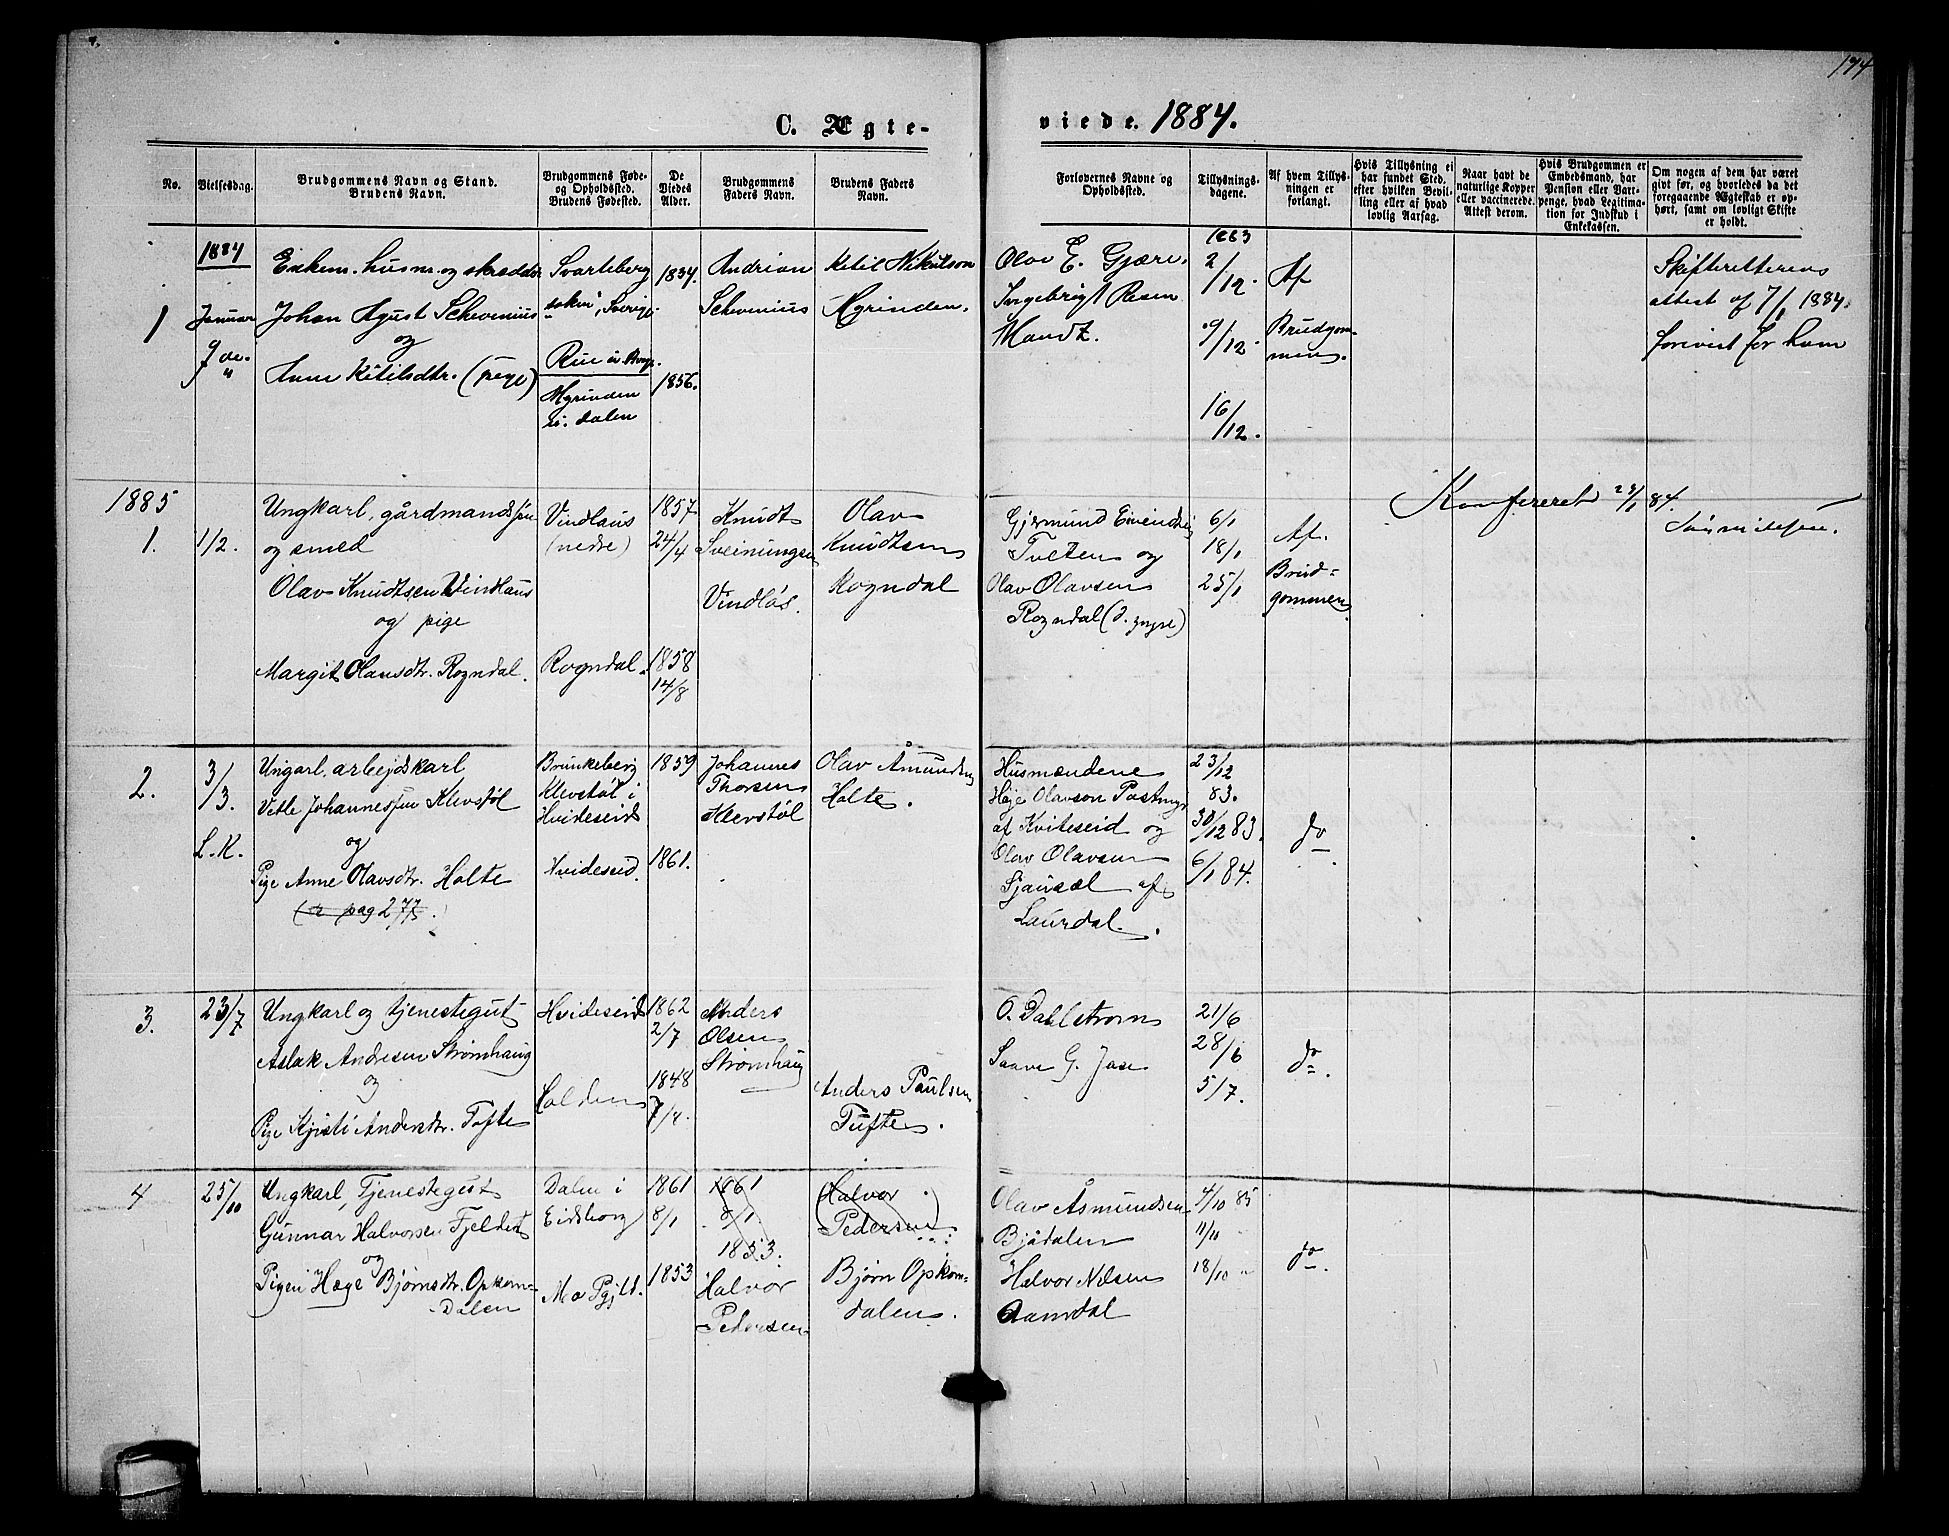 174
C. Ægte-
viede. 1884.
No.
Vielsesdag.
Brudgommens Navn og Stand.
Brudens Navn.
Brudgommens Føde-
og Opholdsted.
Brudens Fødested.
De
Viedes
Alder.
Brudgommens
Faders Navn.
Brudens Faders
Navn.
Forlovernes Navne og
Opholdssted.
Tillysnings-
dagene.
Af hvem Tillys-
ningen er
forlangt.
Hvis Tillysning ei
har fundet Sted,
efter hvilken Bevil-
ling eller af hvad
lovlig Aarsag.
Naar havt de
naturlige Kopper
eller vaccinerede.
Attest derom.
Hvis Brudgommen er
Embedsmand, har
Pension eller Vart-
penge, hvad Legitima-
tion for Indskud i
Enkekassen.
Om nogen af dem har været
givt før, og hvorledes da det
foregaaende Ægteskab er op-
hørt, samt om lovligt Skifte
er holdt.
1884
1
Januar
9 de.
Enkem. husm. og skrædder
Johan Agust Schevenius
og
Anne Ketilsdtr. (pige)
Svarteberg
sokn, Sverige.
Rue
Mgrinden
i Dalen
1834.
1856.
Andrian
Schevenius
Ketil Nikulson
Mgrinden.
Olav E. Gjære.
Ingebrigt Resen
Mandt.
1883
2/12.
9/12.
16/12.
Af
Brudgom-
men.
Skifterettens
attest af 7/1 1884.
forevist for ham
Konfereret 23/1 84.
1885
1.
1/2.
Ungkarl, gårdmandssøn
og smed
Olav Knudtsen Vindlaus
og pige
Margit Olavsdtr. Rogndal.
Vindlaus
(nedre)
Rogndal.
1857
24/4
1858
14/8
Knudt
Sveinungsen
Vindlås.
Olav
Knudtsen
Rogndal
Gjermund Eivendsen
Tveten og
Olav Olavsen
Rogndal (d. yngre)
6/1
18/1
25/1
Af.
Brud=
gommen
2.
3/3.
L.K.
Ungarl. arbejdskarl
Vetle Johannessen Klevstøl
og
Pige Anne Olavsdtr. Holte
(se pag 277.)
Brunkeberg
Klevstøl i
Hvideseid
Hvideseid.
1859
1861.
Johannes
Thorsen
Klevstøl
Olav Åmundsen
Holte.
Husmændene
Høje Olavson Postmyr
af Kviteseid og
Olav Olavsen
Sjausæl af
Laurdal.
23/12
83.
30/12 83.
6/1 84.
do
3.
23/7
Ungkarl og tjenestegut
Aslak Andresen Strømhaug
og
Pige Kjisti Andersdtr. Tofte
Hvideseid
Holden
1862
2/7
1848
7/4.
Anders
Olsen
Strømhaug
Anders Paulsen
Tufte.
O. Dahlstrøm
Saave G. Jase
21/6
28/6
5/7.
do
4
25/10
Ungkarl, Tjenestegut
Gunnar Halvorsen Fjeldet
og
Pigen Hæge Bjørnsdtr. Opkom-
Dalen
Dalen i
Eidsborg
Mo Pgjld.
1861
8/1
1853
1861
8/1
1853.
Halvor
Pedersen
(Halvor
Pedersen)
Bjørn Opkom-
dalen.
Olav Åsmundsen
Bjådalen
Halvor Nilsen
Aamdal
4/10 85
11/10
18/10 "
do